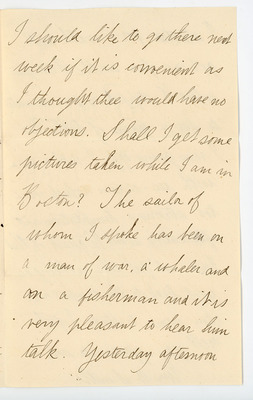 I should like to go there next
week if it is convenient as
I thought thee would have no
objections. Shall I get some
pictures taken while I am in
Boston? The sailor of
whom I spoke has been on
a man of war, a whaler and
on a fisherman and it is
very pleasant to hear him
talk. Yesterday afternoon